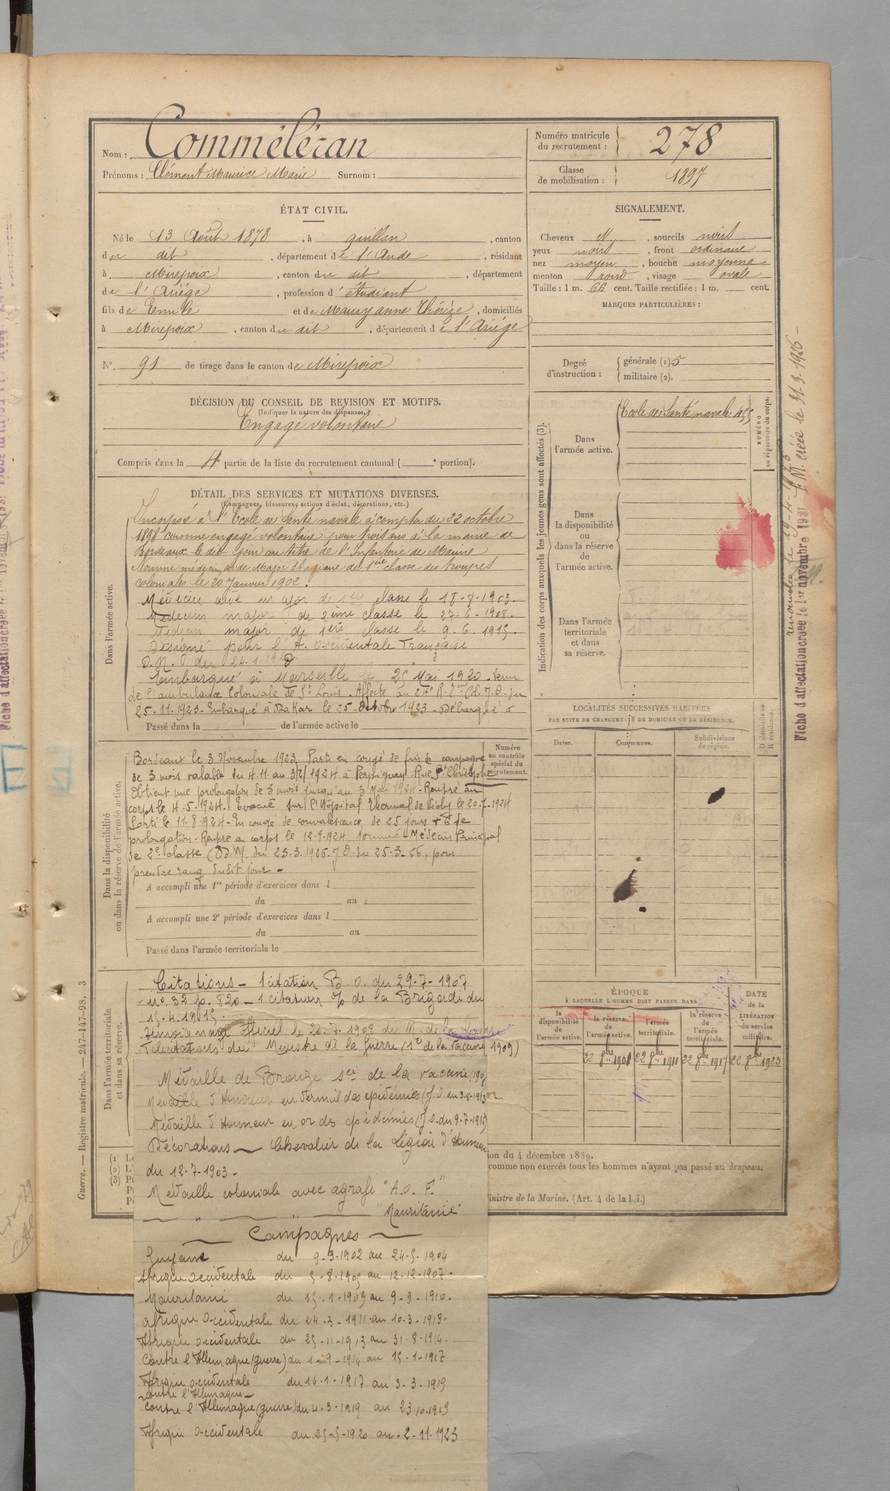 Nom : Comméléran
Prénoms : Clément Maurice Marie Surnom :
Numéro matricule du recrutement : 278
Classe de mobilisation : 1897
ÉTAT CIVIL.
Né le 13 Août 1878, à quillan, canton
du dit, département de l'Aude, résidant
à Mirepoix, canton du dit, département
de l'Ariège, profession d'étudiant
fils de Emile et de Mauzy anne Thérèze, domiciliés
à Mirepoix, canton du dit, département de l'Ariège
N° 91 de tirage dans le canton de Mirepoix
SIGNALEMENT.
Cheveux N, sourcils noirs
yeux noirs, front ordinaire
nez moyen, bouche moyenne
menton rond, visage ovale
Taille : 1 m. 66 cent. Taille rectifiée : 1 m. cent.
MARQUES PARTICULIÈRES :
Degré d'instruction : générale (1) 5
militaire (2).
DÉCISION DU CONSEIL DE REVISION ET MOTIFS.
(Indiquer la nature des dispenses.)
Engagé volontaire
Compris dans la 4 partie de la liste du recrutement cantonal ( portion).
DÉTAIL DES SERVICES ET MUTATIONS DIVERSES.
(Campagnes, blessures, actions d'éclat, décorations, etc.)
Dans l'armée active.
Incorporé à l'Ecole de Santé navale à compter du 22 octobre
1898 comme engagé volontaire pour trois ans à la mairie de
Bordeaux le dit jour au titre de l'Infanterie de Marine
Nommé médecin aide Major de 1ère classe des troupes
coloniales le 20 Janvier 1902.
Médecin major de 2ème classe le
Médecin major de 1ère classe le 9-6-1915
Désigné pour l'A. Occidentale Française
Embarqué à Marseille le 25 Mai 1920
de l'ambulance Coloniale de St Louis. Affecté au
25-11-1923. Embarqué à Dakar le 25 Octobre 1923. Débarqué à
Passé dans la de l'armée active le
Dans la disponibilité ou dans la réserve de l'armée active.
Bordeaux le 3 Novembre 1923 Parti en congé de fin de campagne
de 3 mois valable du 4.11 au 3/2/1924 à Perpignan Rue St Christophe
Obtient une prolongation de 3 mois jusqu'au 3 Mai 1924. Rentré au
corps le 4-5-1924. Evacué sur l'Hôpital Thermal de Vichy le 20-7-1924
Sorti le 11-8-1924. En congé de convalescence de 25 jours
prolongation. Rentré au corps le 12-9-1924. Nommé Médecin Principal
de 2e classe (D.M. du 23-3-1926 J.O. du 25-3-26, pour
prendre rang dudit jour.
Numéro au contrôle spécial du recrutement.
A accompli une 1re période d'exercices dans l
du au
A accompli une 2e période d'exercices dans l
du au
Passé dans l'armée territoriale le
Dans l'armée territoriale et dans sa réserve.
Citations - 1 citation B. O. du 29-7-1907
1 citation de la Brigade du
15-4-1915
Félicitations du Ministre de la Guerre (1re de la vaccine 1909)
Médaille de Bronze sce de la vaccine
Médaille d'Honneur en Vermeil des épidémies
Médaille d'Honneur en or des épidémies
Décorations - Chevalier de la Légion d'Honneur
du 12-7-1903.
Médaille coloniale avec agrafe "A.O.F."
" " " "Mauritanie"
Campagnes
Guyane du 9-3-1902 au 24-5-1904
Afrique occidentale du 5-8-1905 au 12-12-1907
Mauritanie du 15-1-1909 au 9-9-1910
Afrique occidentale du 24-3-1911 au 10-3-1913
Afrique occidentale du 25-11-1913 au 31-8-1914
Contre l'Allemagne (guerre) du 1-9-1914 au 15-1-1917
Afrique occidentale du 16-1-1917 au 3-3-1919
contre l'Allemagne
contre l'Allemagne (guerre) du 4-3-1919 au 23-10-1919
Afrique occidentale du 25-5-1920 au 2-11-1923
Indication des corps auxquels les jeunes gens sont affectés (3).
Dans l'armée active.
Ecole de Santé navale 455
NUMÉRO au répertoire du corps.
Dans la disponibilité ou dans la réserve de l'armée active.
Dans l'armée territoriale et dans sa réserve.
LOCALITÉS SUCCESSIVES HABITÉES
PAR SUITE DE CHANGEMENT DE DOMICILE OU DE RÉSIDENCE.
Dates. Communes. Subdivisions de région.
ÉPOQUE
À LAQUELLE L'HOMME DOIT PASSER DANS
la disponibilité de l'armée active.
la réserve de l'armée active.
l'armée territoriale.
la réserve de l'armée territoriale.
DATE de la LIBÉRATION du service militaire.
22 8bre 1901 22 8bre 1911 22 8bre 1917 22 8bre 1923
ion du 4 décembre 1889.
comme non exercés tous les hommes n'ayant pas passé au drapeau.
inistre de la Marine. (Art. 4 de la Loi.)
Guerre. — Registre matricule. — 247-147-98. 3
Fiche d'affectation créée le 1er novembre 1931
F.M. créée le 31.3.1926